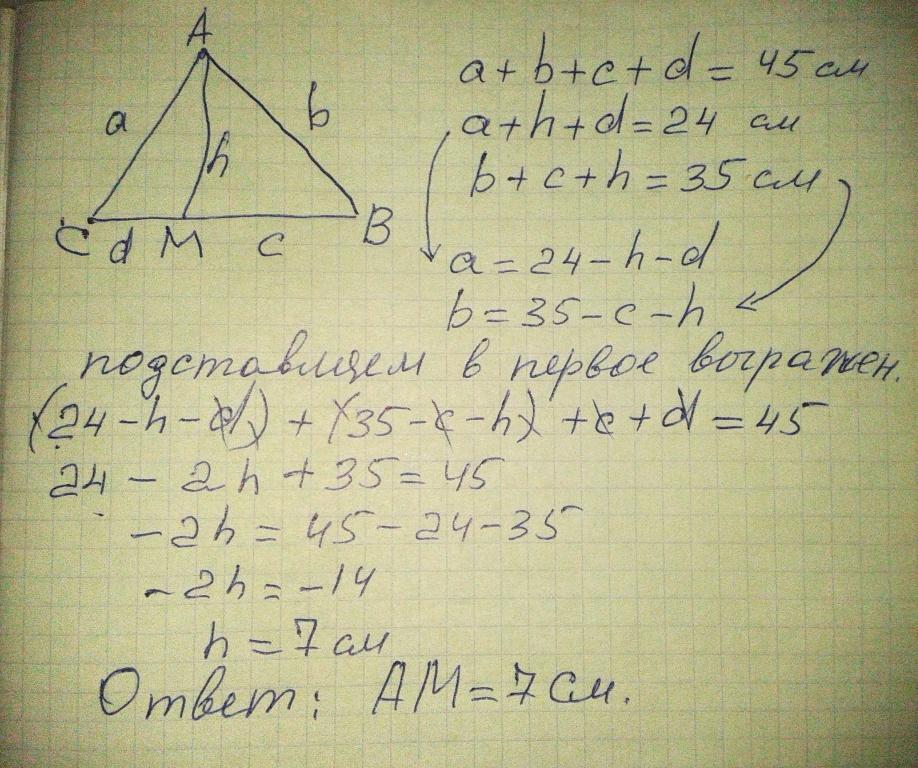 A
a
b
h
C d M c B
a + b + c + d = 45 см
a + h + d = 24 см
b + c + h = 35 см
a = 24 - h - d
b = 35 - c - h
подставляем в первое выражен.
(24 - h - d) + (35 - c - h) + c + d = 45
24 - 2h + 35 = 45
-2h = 45 - 24 - 35
-2h = -14
h = 7 см
Ответ: AM = 7 см.